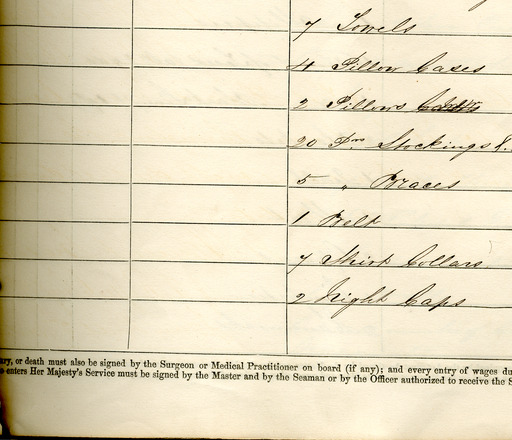 7 Towels
4 Pillow Cases
2 Pillows
20 Prs Stockings &
5 " Braces
1 Belt
7 Shirt Collars
2 Night Caps
ary, or death must also be signed by the Surgeon or Medical Practitioner on board (if any); and every entry of wages du
o enters Her Majesty's Service must be signed by the Master and by the Seaman or by the Officer authorized to receive the S